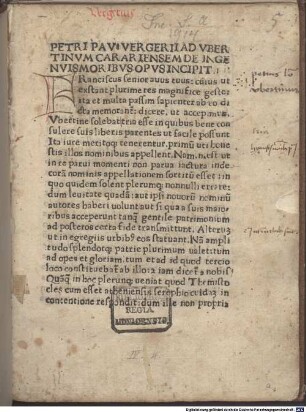 Vergerius
PETRI PAVI VERGERII AD VBER
TINVM CARARIENSEM DE INGE
NVIS MORIBVS OPVS INCIPIT
Franciscus senior auus tuus: cuius ut
extant plurime res magnifice gest
ita et multa passim sapienter ab eo di
cta memorant: dicere, ut accepimus
Vbertine solebat: tria esse in quibus bene con
sulere suis liberis parentes ut facile possunt
Ita iure merito tenerentur. primum uti hone
stis illos nominibus appellent. Nam
in re parui momenti non parua iactura inde
corum nominis appellationem sortitum esse: in
quo quidem solent plerumque nonnulli errare
dum leuitate quadam: aut ipsi nouorum nominum
autores haberi uoluntaut si qua a suis maio
ribus acceperunt tanquam gentile patrimonium
ad posteros certa fide transmittunt. Alterum
ut in egregiis urbibus eos statuant. Nam ampli
tudo splendorque patrie plurimum ualet tum
ad opes et gloriam. tum et ad quod tertio
loco constituebat ab illo
Quamquam in hoc plerumque ueniat quod Themisto
cles cum esset atheniensis seraphio cuidam in
contentione respondit: dum ille non propria
REGIA
MONACENSIS